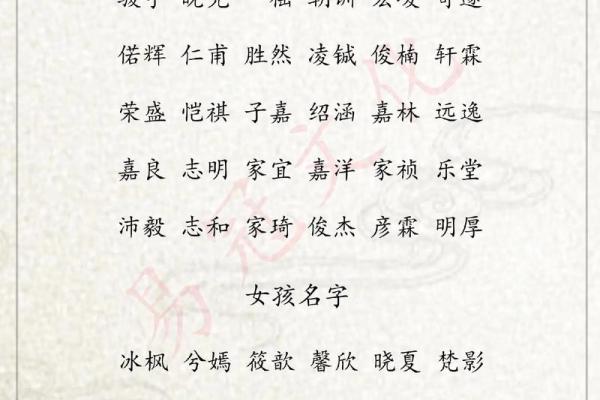 偌辉 仁甫 胜然 凌铖 俊楠 轩霖
荣盛 恺祺 子嘉 绍涵 嘉林 远逸
嘉良 志明 家宜 嘉洋 家祯 乐堂
沛毅 志和 家琦 俊杰 彦霖 明厚
女孩名字
冰枫 兮嫣 筱歆 馨欣 晓夏 梵影
易冠文化